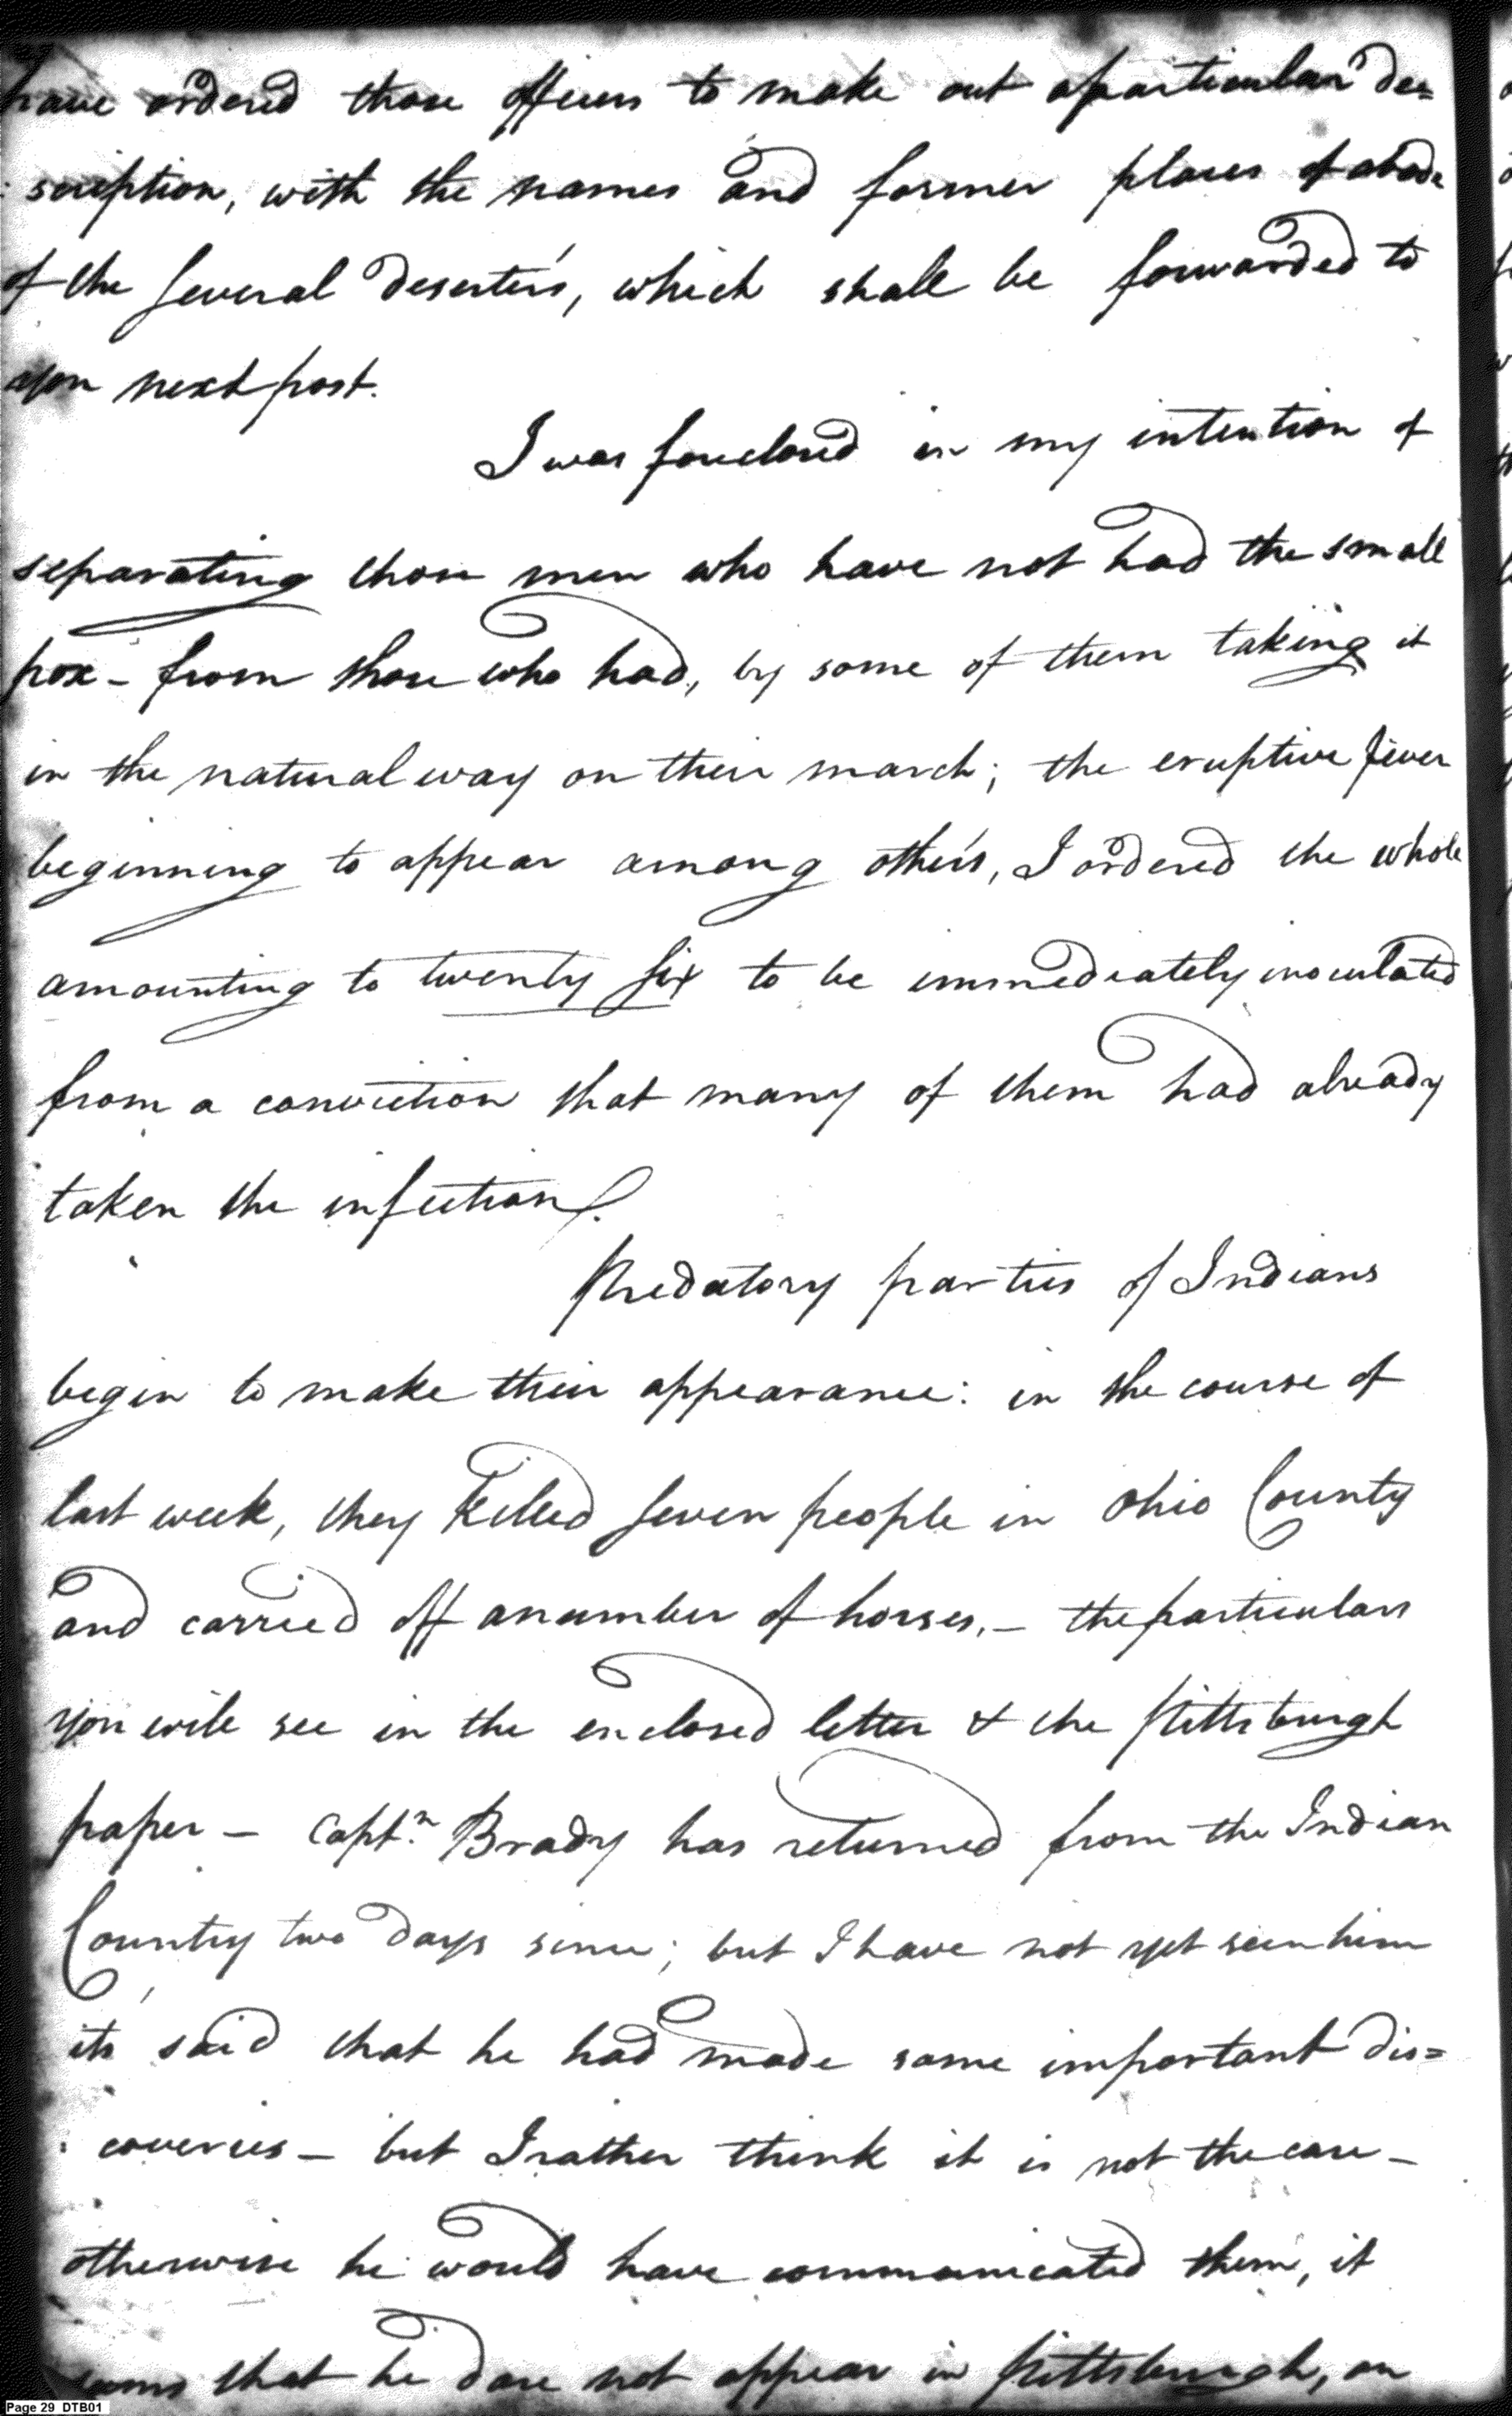 have ordered those officers to make out a particular des=
: scription, with the names and former places of abode
of the several deserters, which shall be forwarded to
you next post.
I was foreclosed in my intention of
separating those men who have not had the small
pox - from those who had, by some of them taking it
in the natural way on their march; the eruptive fever
beginning to appear among others, I ordered the whole
amounting to twenty six to be immediately inoculated
from a conviction that many of them had already
taken the infection.
Predatory parties of Indians
begin to make their appearance: in the course of
last week, they killed seven people in Ohio County
and carried off a number of horses, - the particulars
you will see in the enclosed letter & the Pittsburgh
paper - Captn. Brady has returned from the Indian
Country two days since; but I have not yet seen him
its said that he had made some important dis=
: coveries - but I rather think it is not the case -
otherwise he would have communicated them, it
seems that he dare not appear in Pittsburgh, on
Page 29 DTB01